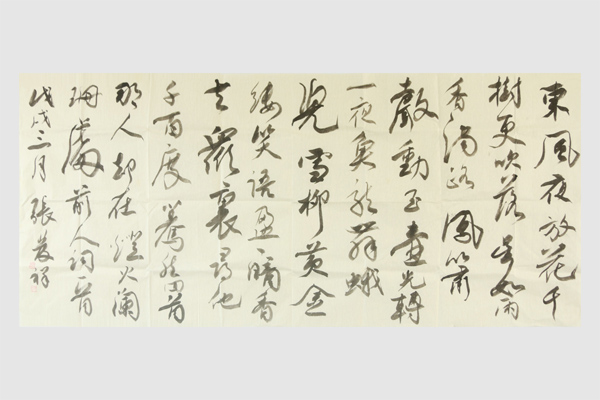 東風夜放花千
樹更吹落星如雨
香滿路鳳簫
聲動玉壺光轉
一夜魚龍舞蛾
兒雪柳黃金
縷笑語盈盈暗香
去眾裏尋他
千百度驀然回首
那人却在燈火闌
珊處前人詞首
戊戌三月張祥